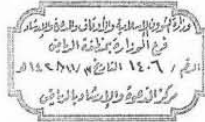 وزارة الشؤون الإسلامية والأوقاف والدعوة والإرشاد
فرع الوزارة بمنطقة الرياض
الرقم / ١٤٠٦ التاريخ ١٤٢٨/٩/٧هـ
مركز الدعوة والإرشاد بالرياض